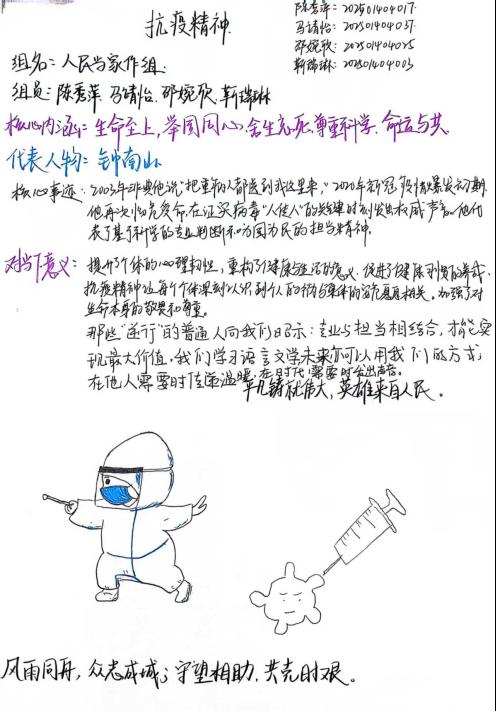 抗疫精神
陈秀萍：202501404017
马靖怡：202501404037
邓婉欣：202501404025
靳瑞琳：202501404003
组名：人民当家作组
组员：陈秀萍 马靖怡 邓婉欣 靳瑞琳
核心内涵：生命至上，举国同心，舍生忘死，尊重科学，命运与共
代表人物：钟南山
核心事迹：2003年非典他说"把重病人都送到我这里来，"2020年新冠疫情暴发初期
他再次临危受命，在证实病毒"人传人"的关键时刻发出权威声音。他代
表了基于科学的专业判断和为国为民的担当精神。
对当下意义：提升了个体的心理韧性，重构了健康与生活的意义，促进了健康习惯的养成
抗疫精神让每个个体深刻认识到个人的行为与集体的安危息息相关。加强了对
生命本身的敬畏和尊重。
那些"逆行"的普通人向我们昭示：专业与担当相结合，才能实
现最大价值。我们学习语言文学未来亦可以用我们的方式，
在他人需要时传递温暖，在时代需要时发出声音。
平凡铸就伟大，英雄来自人民。
风雨同舟，众志成城；守望相助，共克时艰。